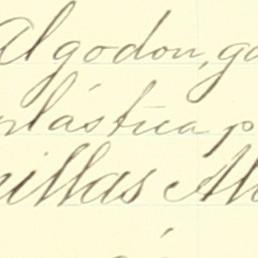 Algodon, ga
plástica p
illas Al